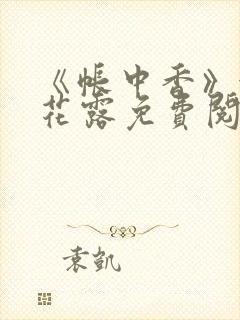 《帐中香》
花露免费阅
袁凯